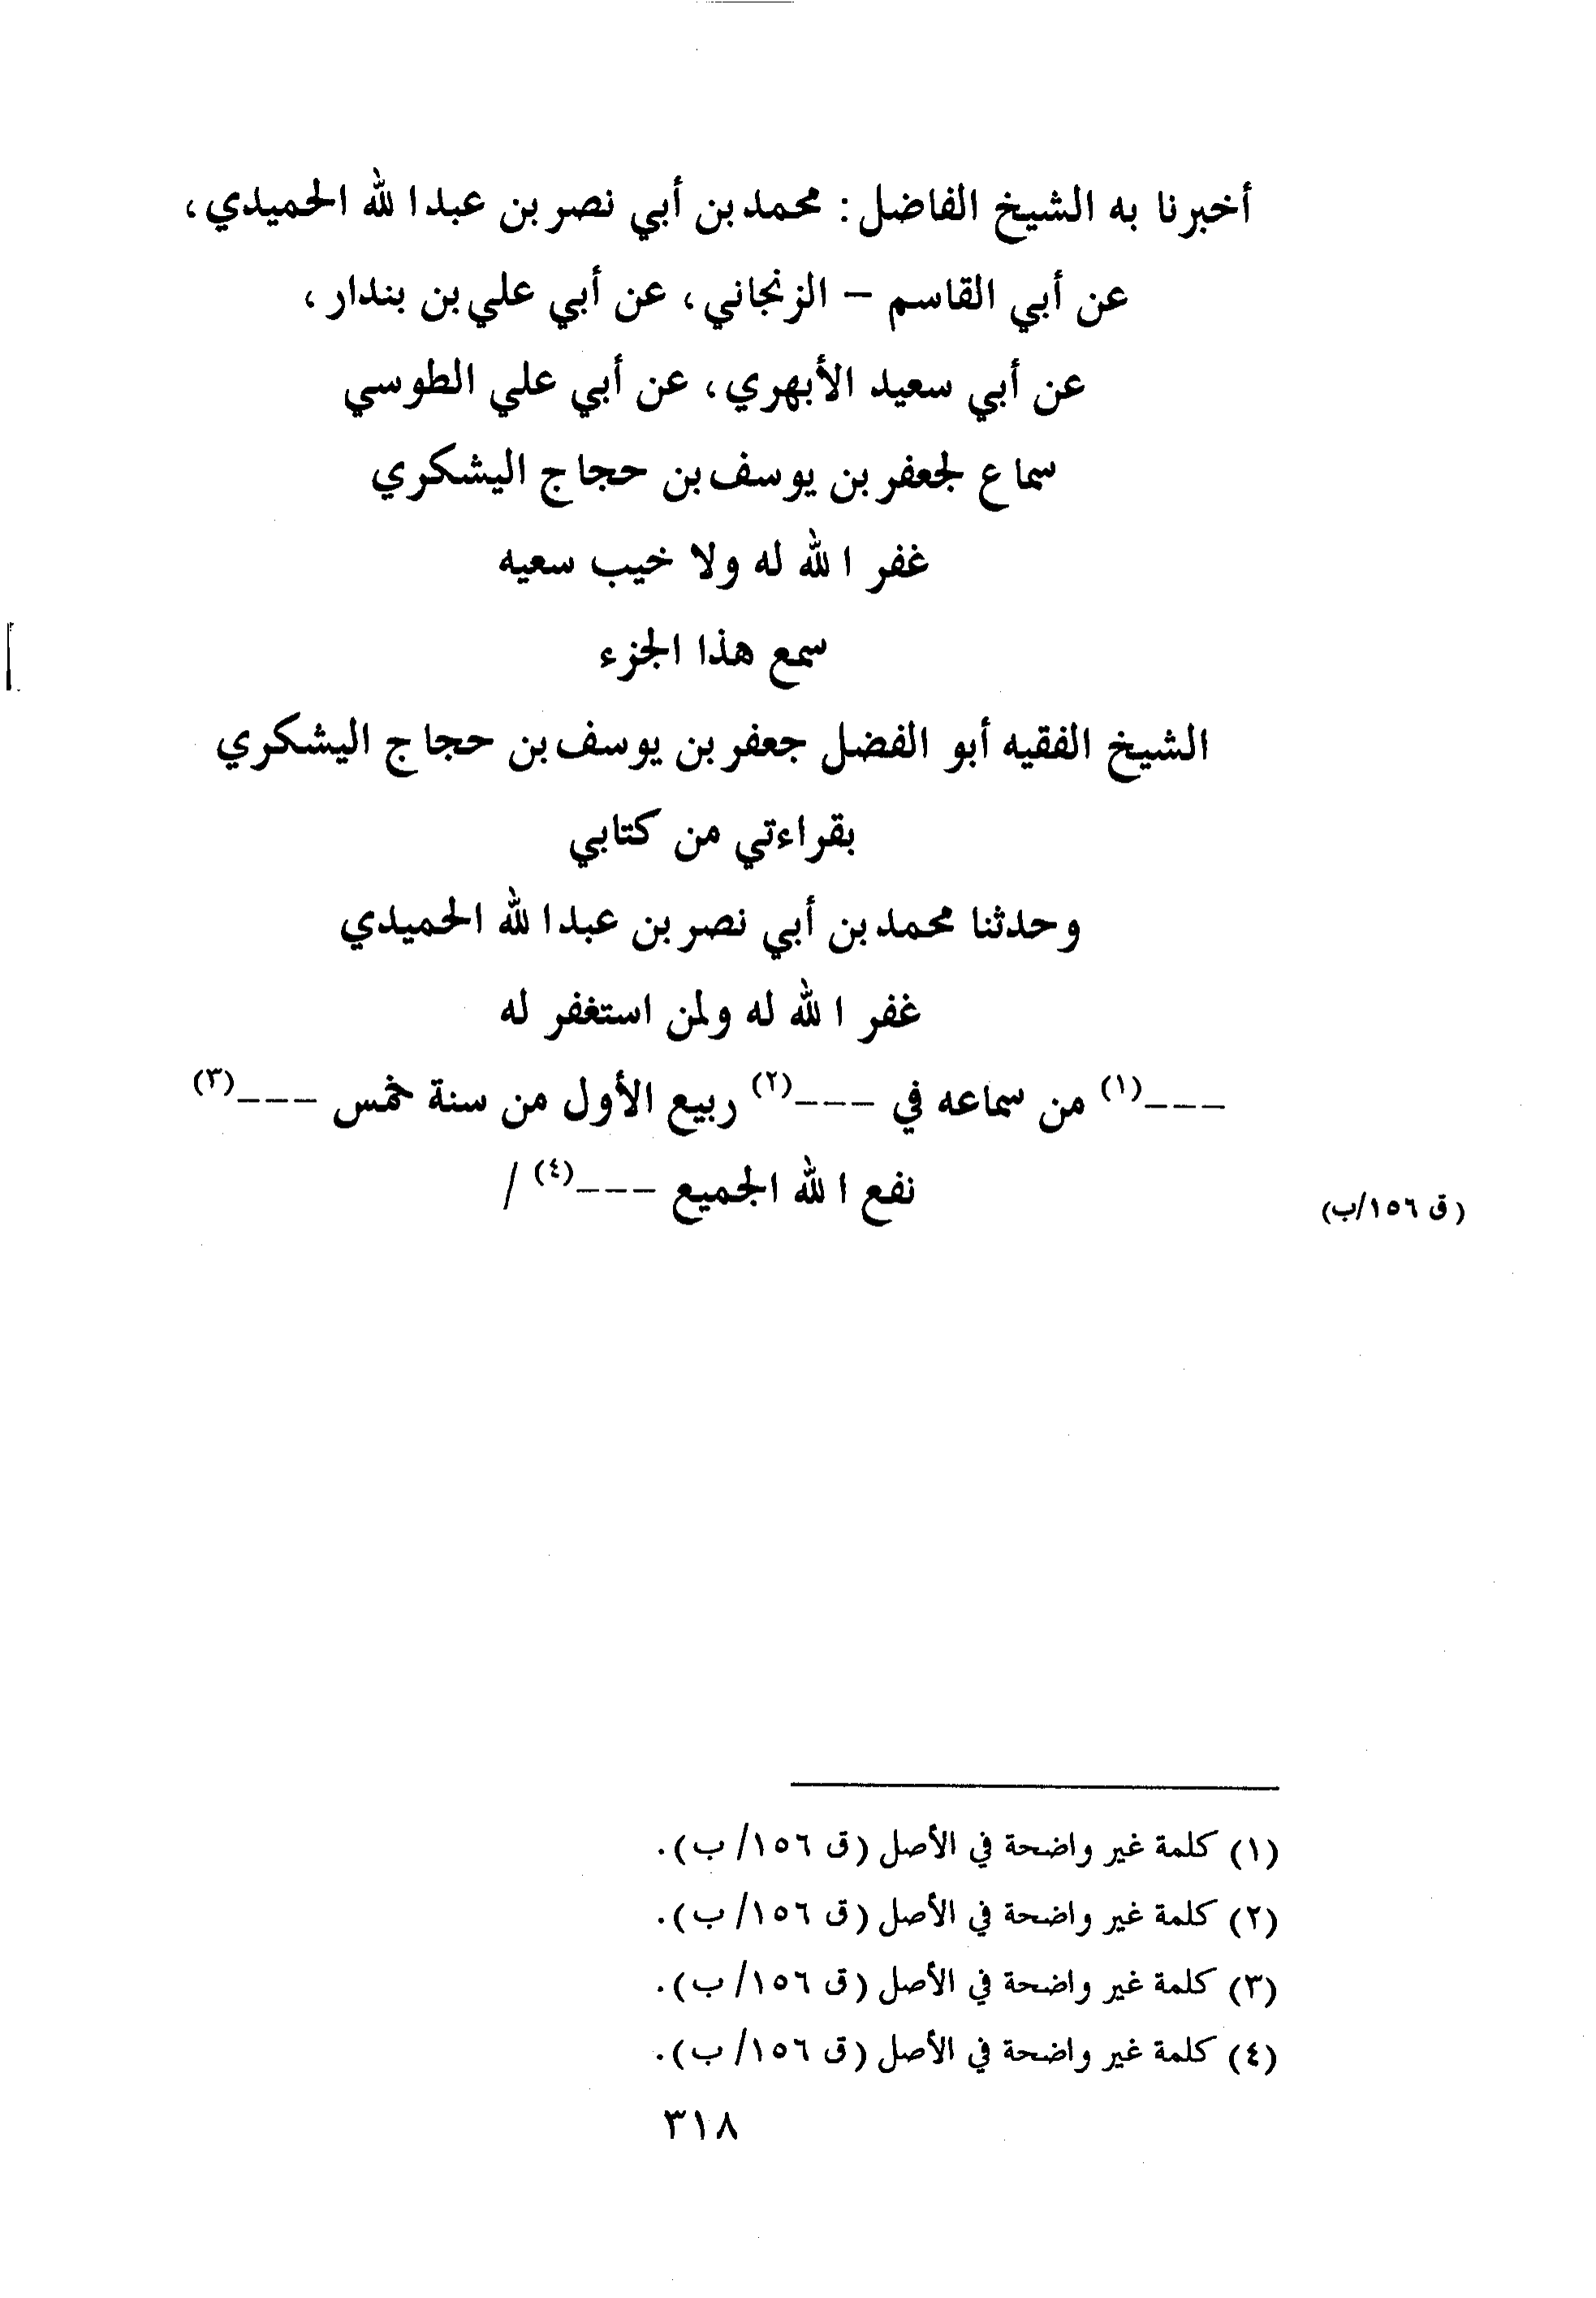 أخبرنا به الشيخ الفاضل: محمد بن أبي نصر بن عبدالله الحميدي،
عن أبي القاسم – الزنجاني، عن أبي علي بن بندار،
عن أبي سعيد الأبهري، عن أبي علي الطوسي
سماع لجعفر بن يوسف بن حجاج اليشكري
غفر الله له ولا خيب سعيه
سمع هذا الجزء
الشيخ الفقيه أبو الفضل جعفر بن يوسف بن حجاج اليشكري
بقراءتي من كتابي
وحدثنا محمد بن أبي نصر بن عبدالله الحميدي
غفر الله له ولمن استغفر له
---(١) من سماعه في ---(٢) ربيع الأول من سنة خمس ---(٣)
نفع الله الجميع ---(٤) /
(ق ١٥٦/ب)
(١) كلمة غير واضحة في الأصل (ق ١٥٦/ ب).
(٢) كلمة غير واضحة في الأصل (ق ١٥٦/ ب).
(٣) كلمة غير واضحة في الأصل (ق ١٥٦/ ب).
(٤) كلمة غير واضحة في الأصل (ق ١٥٦/ ب).
٣١٨